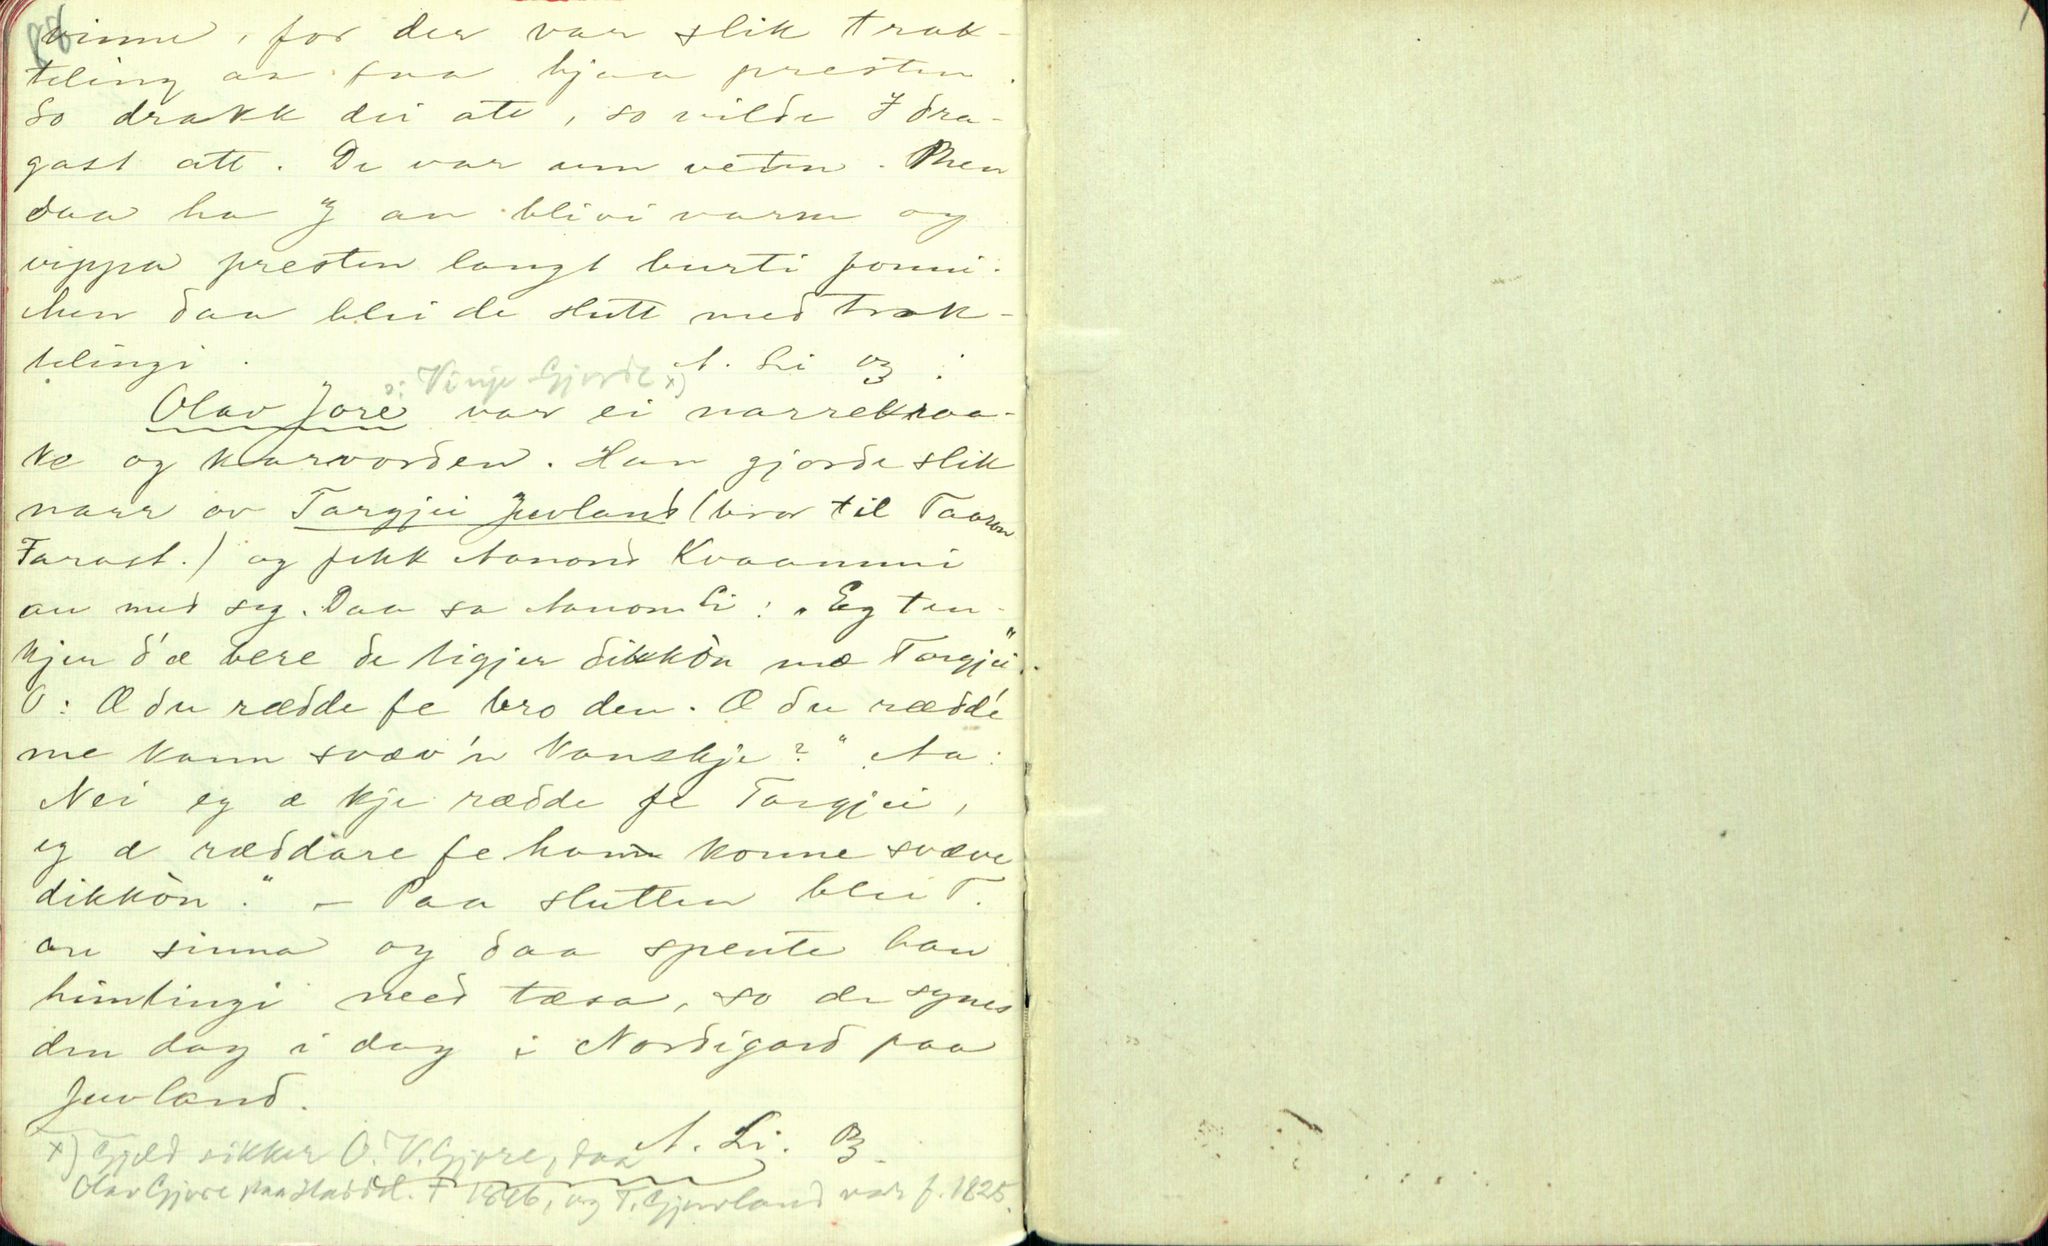 vinne, for der var slik trak-
teling an faa hjaa presten.
So drakk dei ate, so vilde J dra-
gast att. De var um veten. Men
daa ha J an blivi varm og
vippa presten langt burti jonni.
Men daa blei de slutt med trak-
telingi. A. Li B.
ɔ: Vinje Gjorde x)
Olav Jore var ei narrekraa-
ke og karvorden. Han gjorde slik
narr av Targjei Juvland (bror til Taaron
Farast.) og fekk Aanond Kvaammi
an med seg. Daa sa Aanon Li: "Eg ten-
kjer d'æ bere de ligjer dikkòn mæ Targjei".
O: Æ du rædde fe bro den. Æ du rædd'e
me kann svæv'n kanskje?" Aa:
Nei eg æ kje rædde fe Targjei,
eg æ ræddare fe hann konne svæve
dikkòn." – Paa slutten blei T.
an sinna og daa spente han
himlingi med tæsa, so de synes
den dag i dag i Nordigard paa
Juvland.
A. Li. B.
x) Gjeld sikker O. V. Gjore, daa
Olav Gjore paa Haddl. † 1896, og T. Gjuvland var f. 1825.